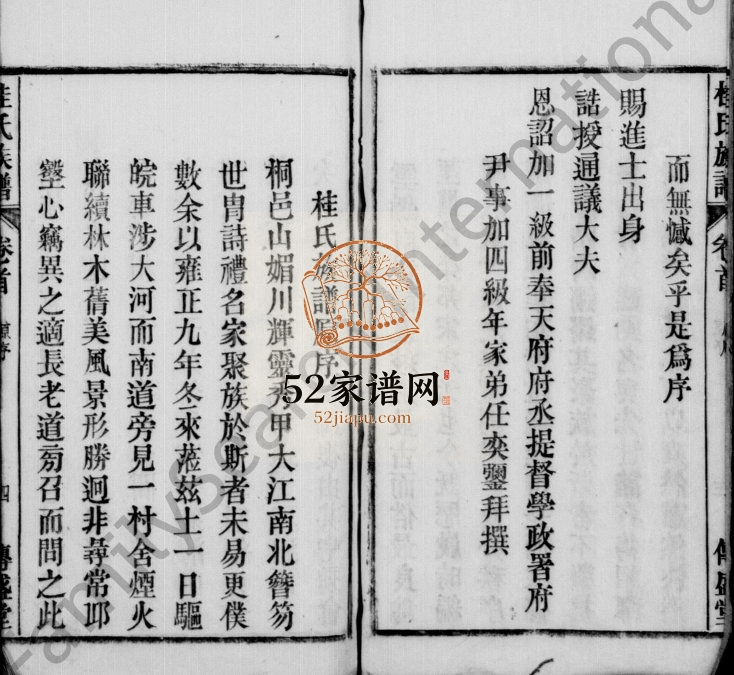 而無憾矣乎是爲序
賜進士出身
誥授通議大夫
恩詔加一級前奉天府府丞提督學政署府
尹事加四級年家弟任奕鑾拜撰
桂氏族譜原序
桐邑山媚川輝靈秀甲大江南北簪笏
世冑詩禮名家聚族於斯者未易更僕
數余以雍正九年冬來蒞茲土一日驅
皖車涉大河而南道旁見一村舍煙火
聯續林木蒨美風景形勝迥非尋常邱
壑心竊異之適長老道旁召而問之此
桂氏族譜
卷首
原序
四
傳盛堂
桂氏族譜
卷首
傳盛堂
52家谱网
52jiapu.com
FamilySearch International